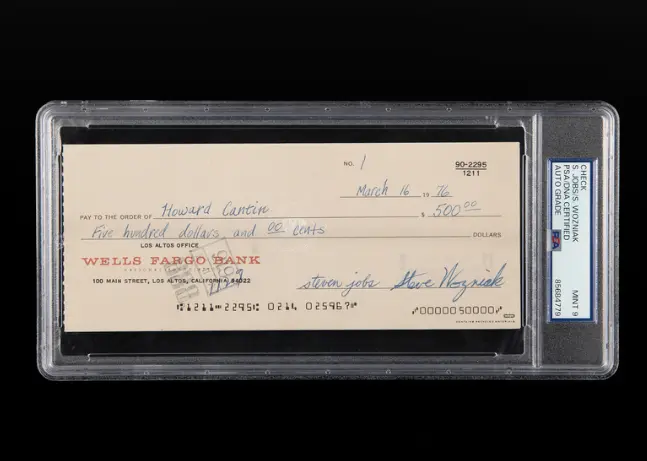 NO. 1
90-2295
1211
March 16 19 76
PAY TO THE ORDER OF Howard Cantin $ 500 00
Five hundred dollars and 00 cents DOLLARS
LOS ALTOS OFFICE
WELLS FARGO BANK
100 MAIN STREET, LOS ALTOS, CALIFORNIA 94022
steven jobs Steve Wozniak
⑆1211⑉2295⑆ 0214 025967⑈ ⑈0000050000⑈
CHECK
S. JOBS/S. WOZNIAK
PSA/DNA CERTIFIED
AUTO GRADE
PSA
MINT 9
85684779